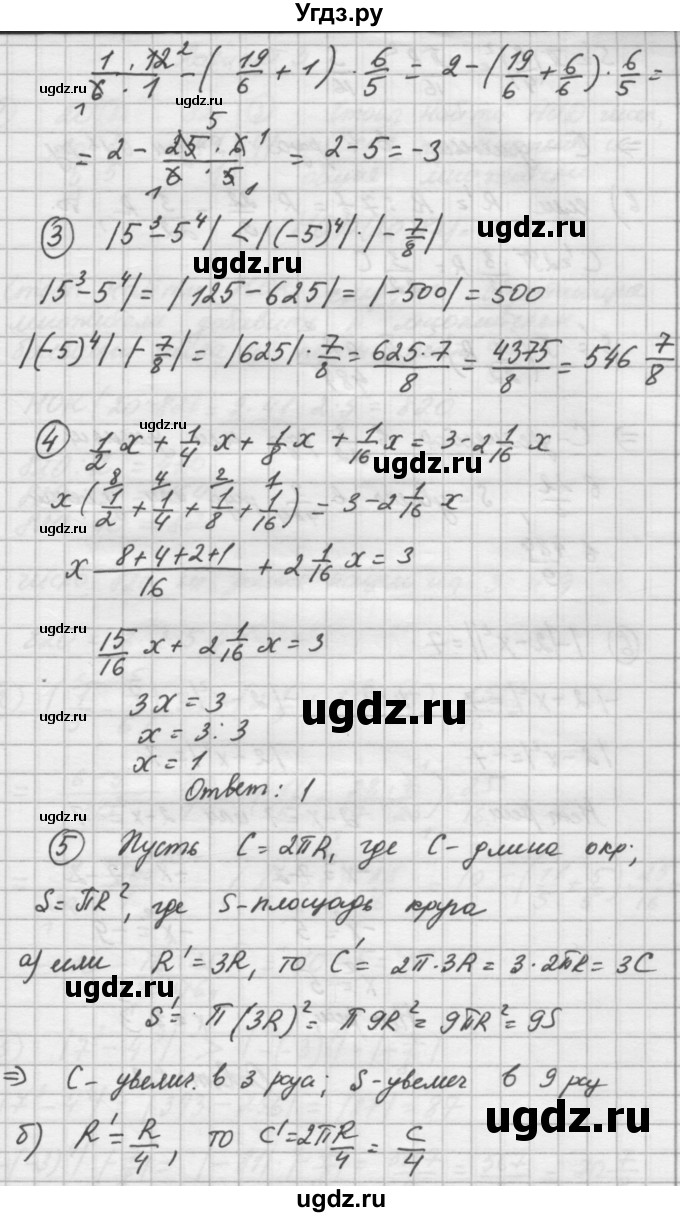 Угдз.ру
1 · 12² / 6 · 1 - (19/6 + 1) · 6/5 = 2 - (19/6 + 6/6) · 6/5 =
= 2 - 25 · 6 / 6 · 5 = 2 - 5 = -3
③ |5³ - 5⁴| < |(-5)⁴| · |-7/8|
|5³ - 5⁴| = |125 - 625| = |-500| = 500
|(-5)⁴| · |-7/8| = |625| · 7/8 = 625·7/8 = 4375/8 = 546 7/8
④ 1/2 x + 1/4 x + 1/8 x + 1/16 x = 3 - 2 1/16 x
x (1/2 + 1/4 + 1/8 + 1/16) = 3 - 2 1/16 x
x 8+4+2+1/16 + 2 1/16 x = 3
15/16 x + 2 1/16 x = 3
3x = 3
x = 3 : 3
x = 1
Ответ: 1
⑤ Пусть C = 2πR, где C - длина окр;
S = πR², где S - площадь круга
а) если R' = 3R, то C' = 2π · 3R = 3 · 2πR = 3C
S' = π(3R)² = π9R² = 9πR² = 9S
=> C - увелич. в 3 раза; S - увелич в 9 раз
б) R' = R/4, то C' = 2πR/4 = C/4
ugdz.ru
ugdz.ru
ugdz.ru
ugdz.ru
ugdz.ru
ugdz.ru
ugdz.ru
ugdz.ru
ugdz.ru
ugdz.ru
ugdz.ru
ugdz.ru
ugdz.ru